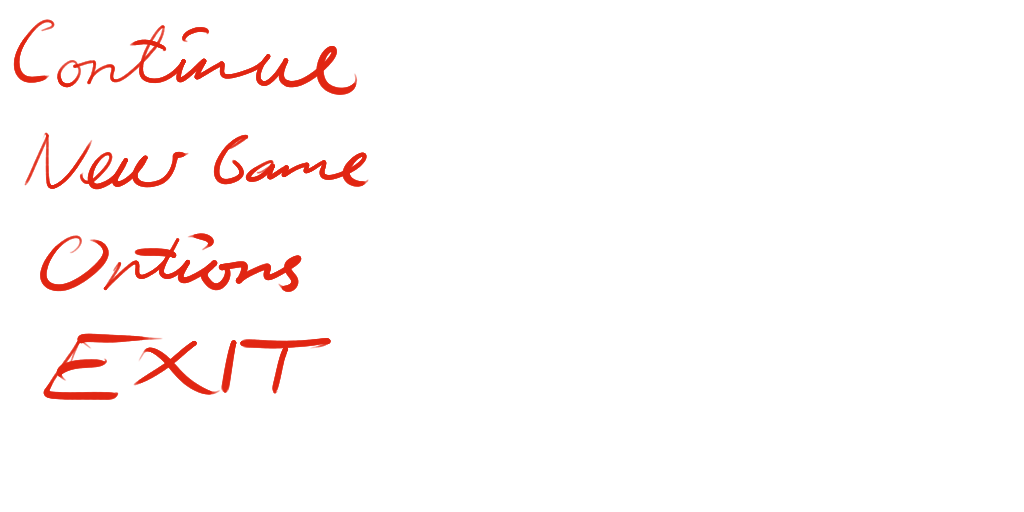 Continue
New Game
Options
EXIT